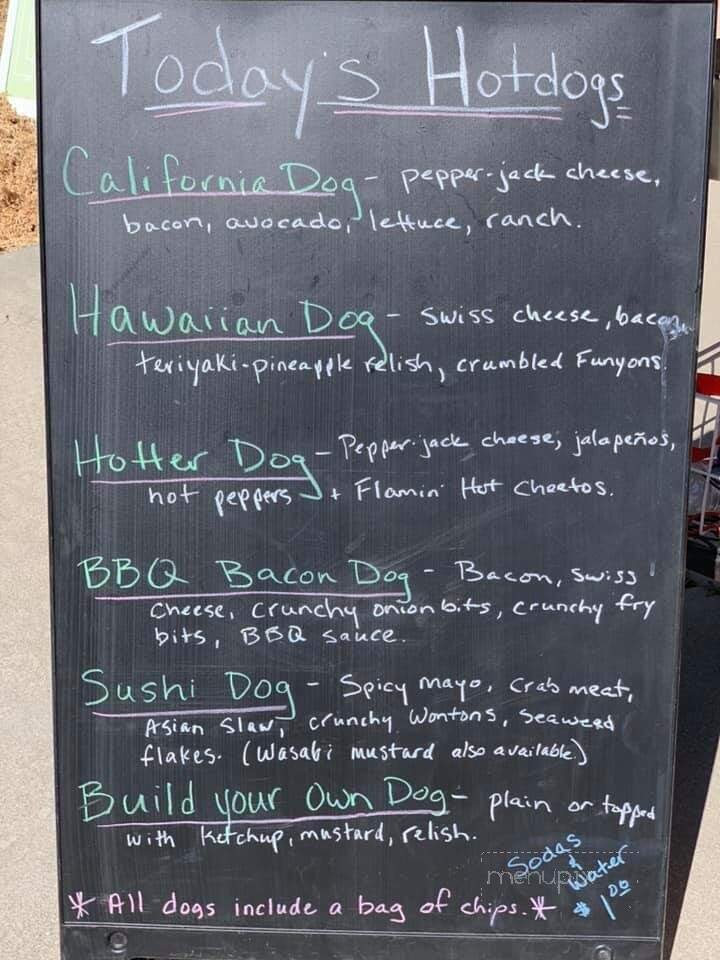 Today's Hotdogs
California Dog - pepper-jack cheese,
bacon, avocado, lettuce, ranch.
Hawaiian Dog - swiss cheese, bacon,
teriyaki-pineapple relish, crumbled Funyons.
Hotter Dog - Pepper-jack cheese, jalapeños,
hot peppers + Flamin' Hot Cheetos.
BBQ Bacon Dog - Bacon, Swiss
cheese, crunchy onion bits, crunchy fry
bits, BBQ sauce.
Sushi Dog - Spicy mayo, Crab meat,
Asian Slaw, crunchy Wontons, Seaweed
flakes. (Wasabi mustard also available)
Build your Own Dog - plain or topped
with ketchup, mustard, relish.
Sodas
& Water
$1.00
* All dogs include a bag of chips. *